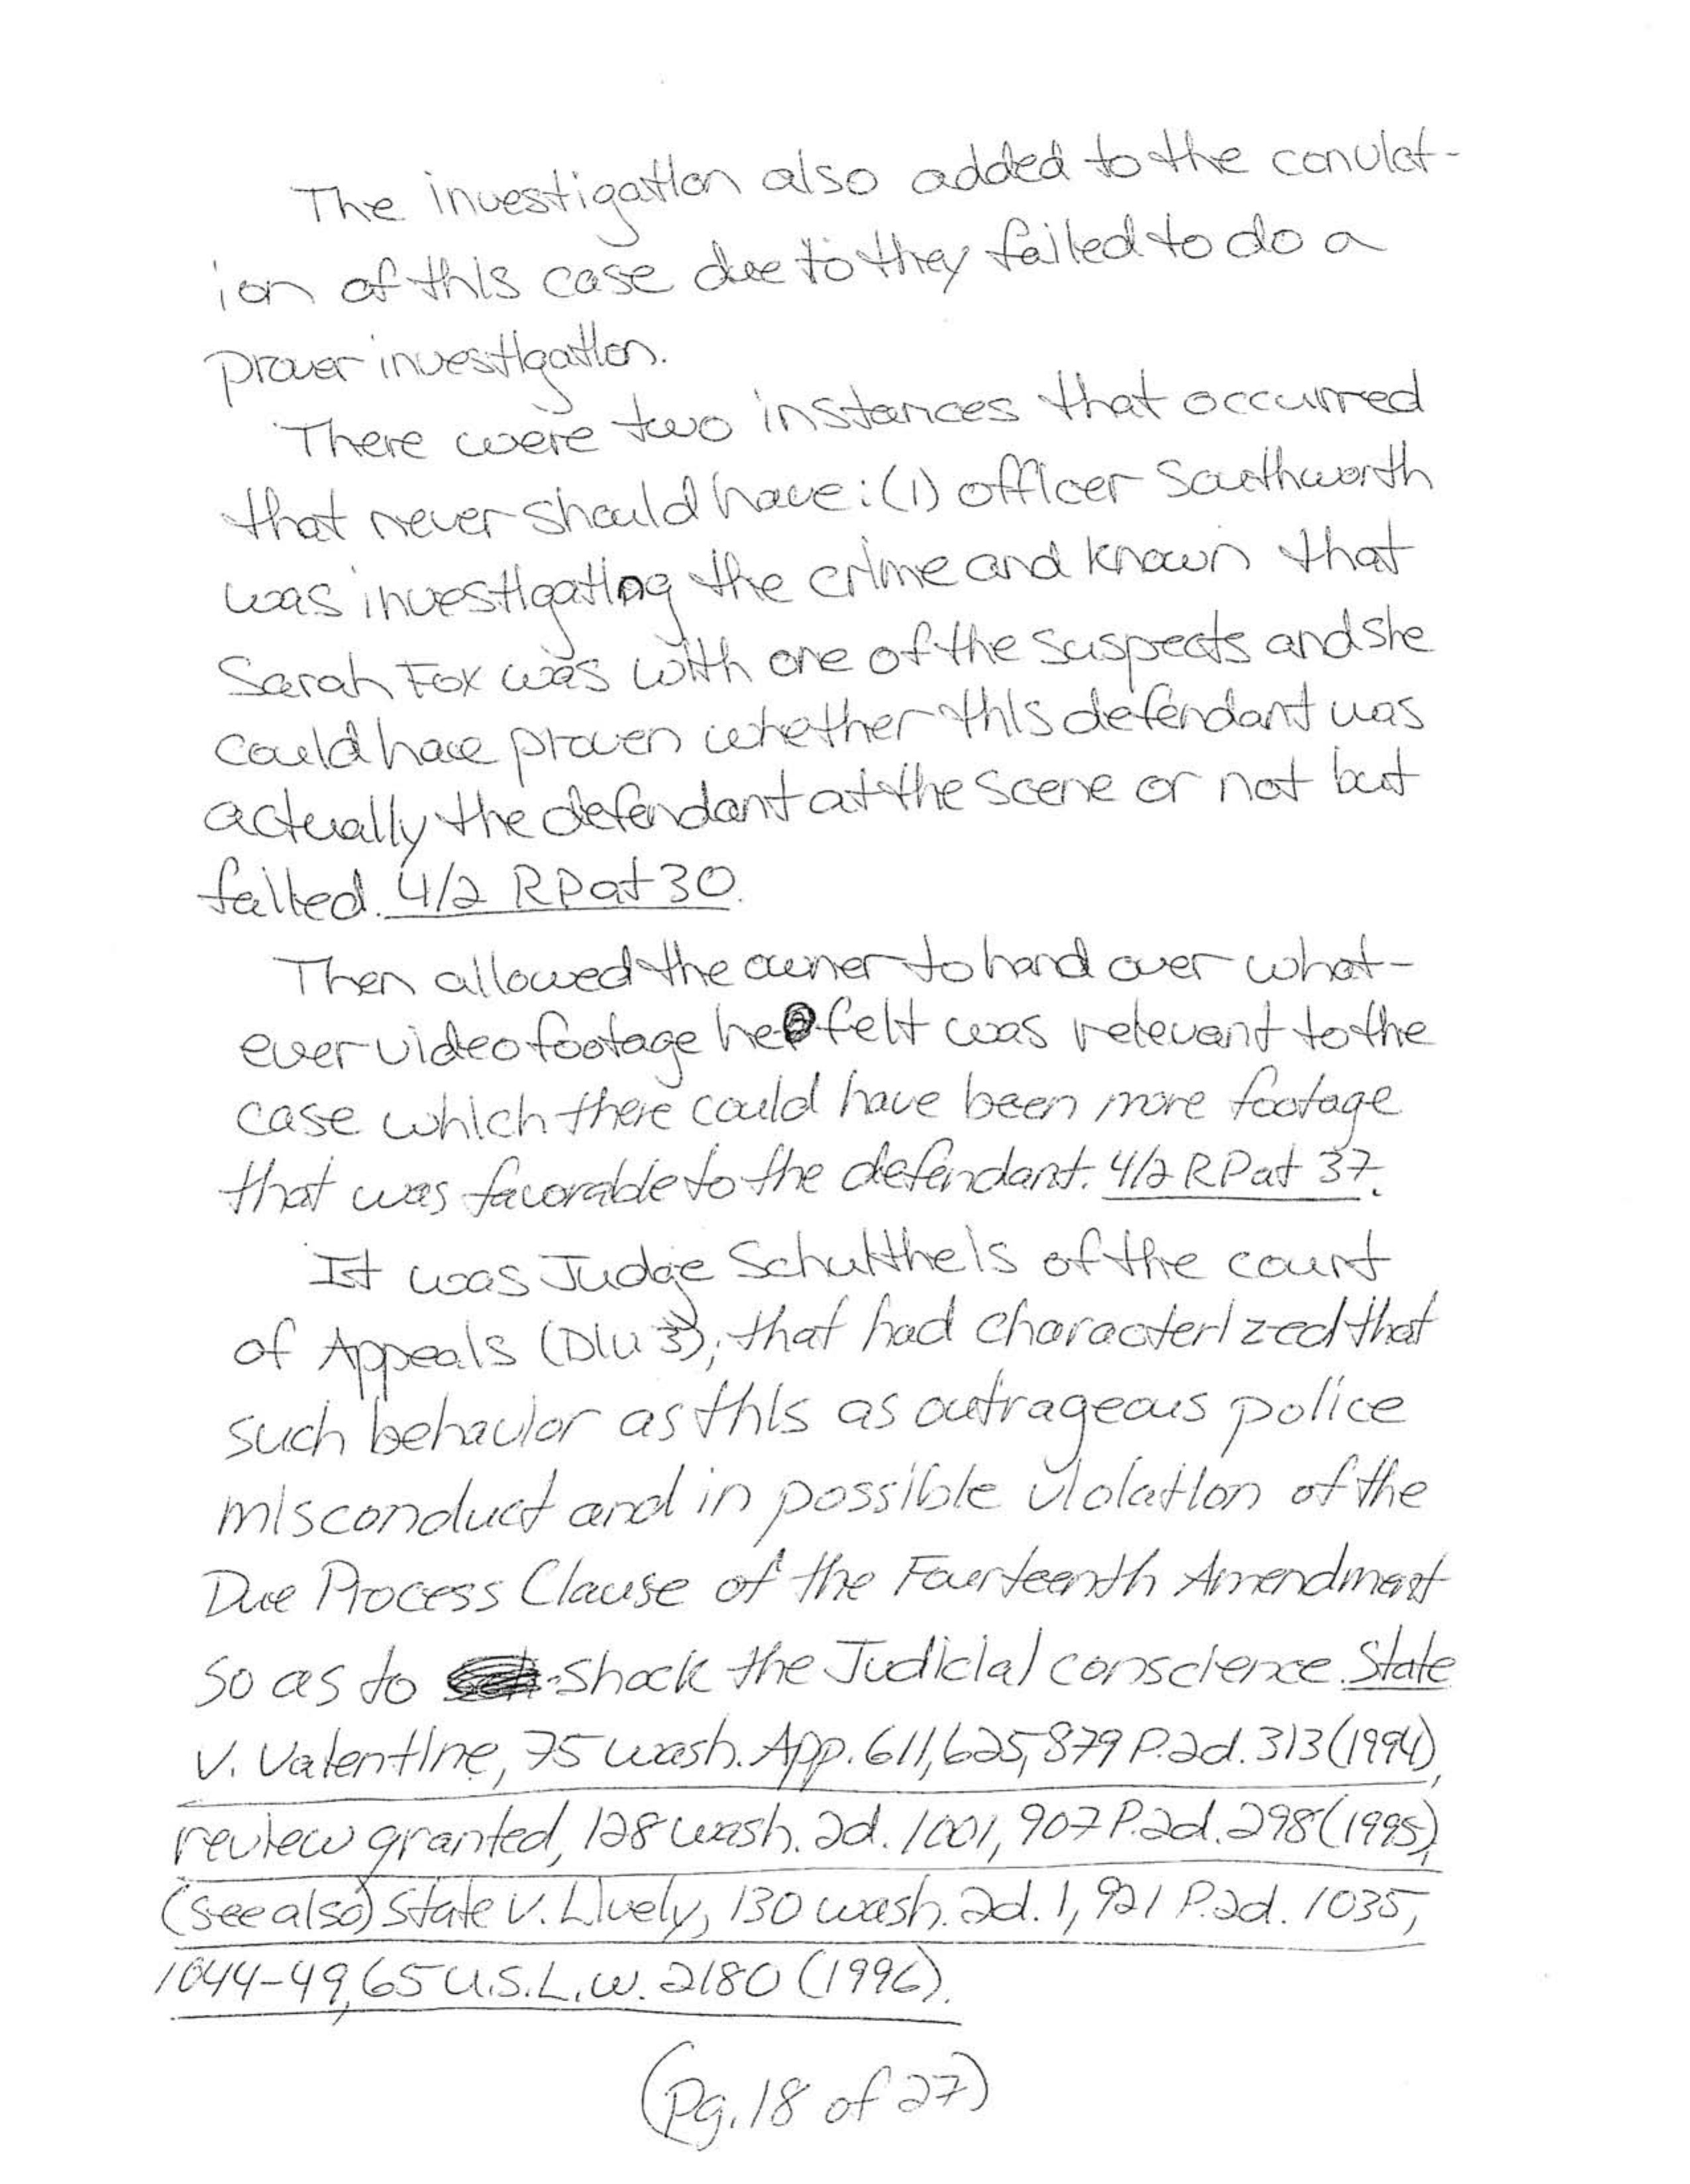 The investigation also added to the convict-
ion of this case due to they failed to do a
prover investigation.
There were two instances that occurred
that never should have: (1) officer Southworth
was investigating the crime and known that
Sarah Fox was with one of the suspects and she
could have proven whether this defendant was
actually the defendant at the scene or not but
failed. 4/2 RP at 30.
Then allowed the owner to hand over what-
ever video footage he felt was relevant to the
case which there could have been more footage
that was favorable to the defendant. 4/2 RP at 37.
It was Judge Schultheis of the court
of Appeals (Div 3), that had characterized that
such behavior as this as outrageous police
misconduct and in possible violation of the
Due Process Clause of the Fourteenth Amendment
so as to shock the Judicial conscience. State
v. Valentine, 75 wash. App. 611, 625, 879 P.2d. 313 (1994),
review granted, 128 wash. 2d. 1001, 907 P.2d. 298 (1995),
(see also) State v. Lively, 130 wash. 2d. 1, 921 P.2d. 1035,
1044-49, 65 U.S.L.W. 2180 (1996).
(Pg. 18 of 27)